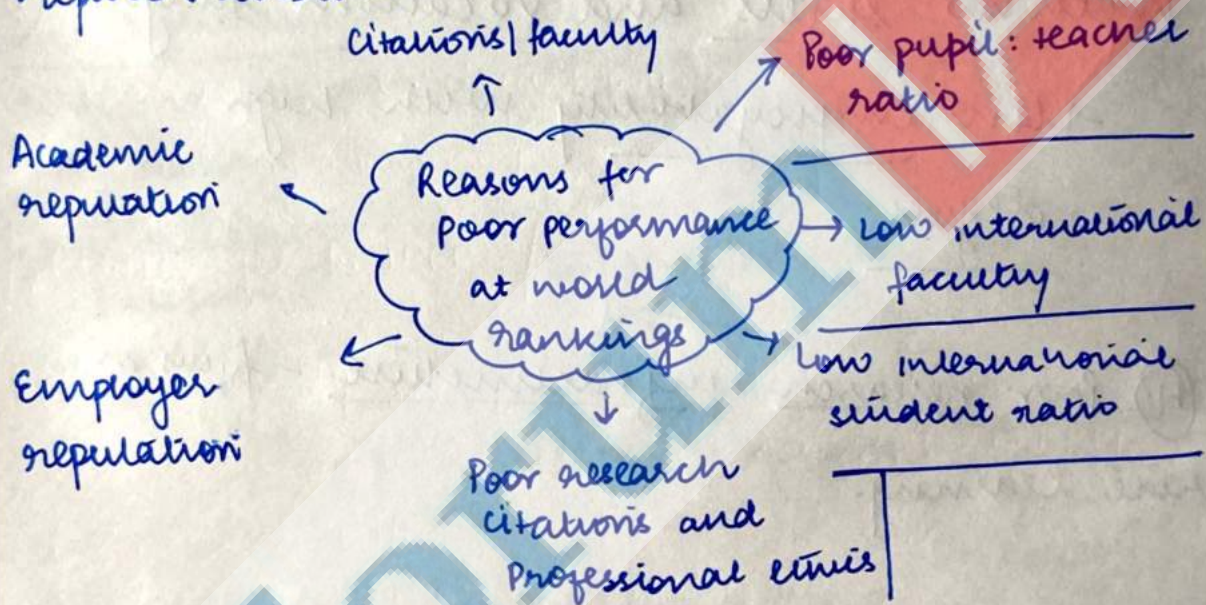 Citations/faculty
Poor pupil: teacher
ratio
Academic
repuation
Reasons for
poor performance
at world
rankings
Low international
faculty
Low international
student ratio
Employer
repulation
Poor research
citations and
Professional